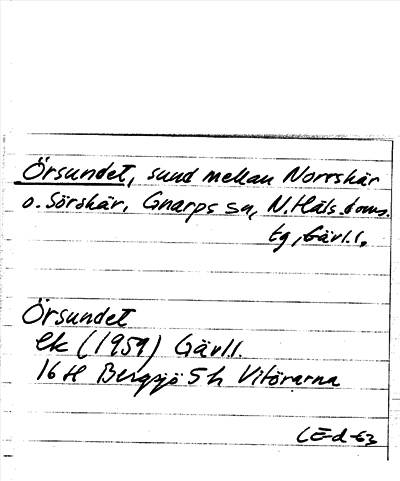 Örsundet, sund mellan Norrskär
o. Sörskär, Gnarps sn, N. Häls. doms.
tg, Gävl.l.
Örsundet
ek (1959) Gävl.l.
16 H Bergsjö 5 h Vitörarna
CE-d-63